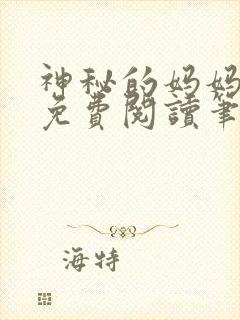 神秘的妈妈
免費閱讀筆
海特